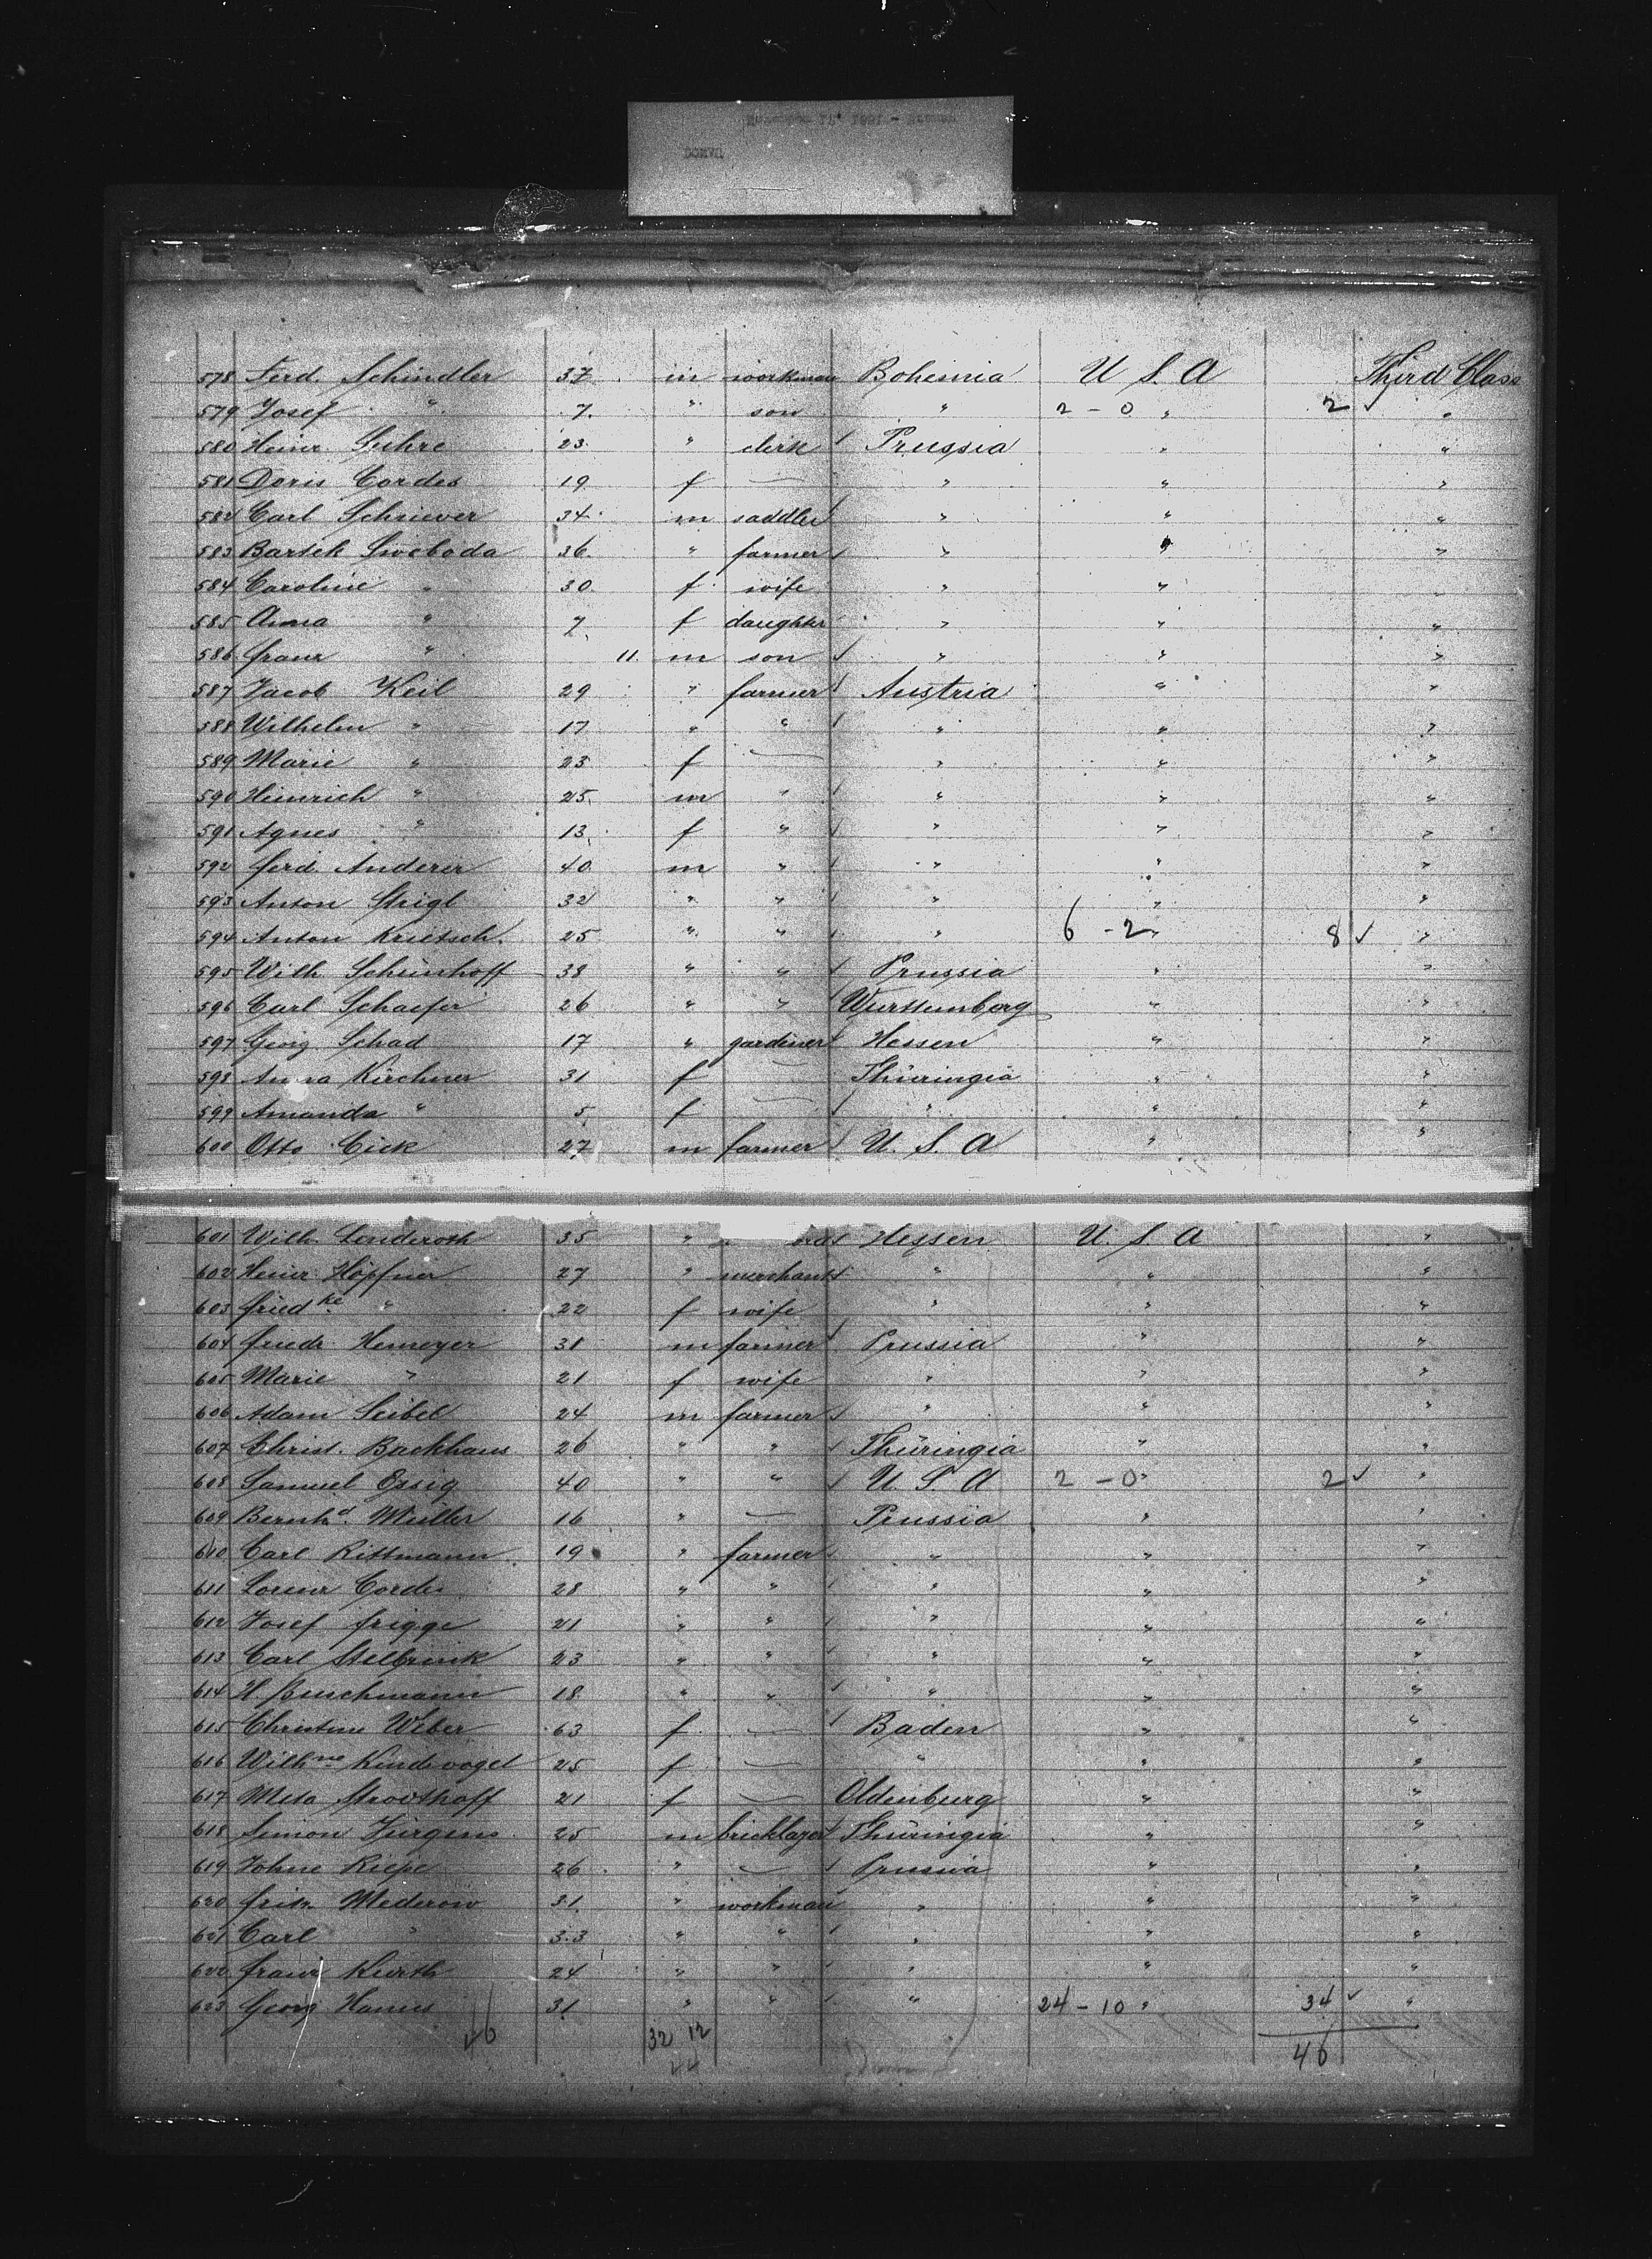 November 11" 1881 - Bremen
DONAU
578 Ferd. Schindler 37. m workman Bohemia U S. A Third Class
579 Josef " 7. " son " 2 - 0 " 2 ✓ "
580 Heinr. Suhre 23. " clerk Prussia " "
581 Doris Cordes 19 f — " " "
582 Carl Schriever 34. m saddler " " "
583 Bartek Swoboda 36. " farmer " " "
584 Caroline " 30. f wife " " "
585 Anna " 7. f daughter " " "
586 Franz " 11. m son " " "
587 Jacob Keil 29 " farmer Austria " "
588 Wilhelm " 17 " " " " "
589 Marie " 23 f — " " "
590 Heinrich " 25. m " " " "
591 Agnes " 13. f " " " "
592 Ferd. Anderer 40 m " " " "
593 Anton Strigl 32 " " " " "
594 Anton Krietsch. 25 " " " 6 - 2 " 8 ✓ "
595 Wilh. Schünhoff 38 " " Prussia " "
596 Carl Schaefer 26 " " Wurttemberg " "
597 Georg Schad 17 " gardener Hessen " "
598 Anna Kirchner 31 f — Thüringia " "
599 Amanda " 5. f — " " "
600 Otto Cick 27 m farmer U. S. A " "
601 Wilh. Lenderoth 35 " Hessen U. S. A "
602 Heinr. Höpfner 27 " merchant " " "
603 Friedke " 22 f wife " " "
604 Friedr. Hemeyer 31 m farmer Prussia " "
605 Marie " 21 f wife " " "
606 Adam Seibel 24 m farmer " " "
607 Christ. Backhaus 26 " " Thüringia " "
608 Samuel Essig 40 " " U. S. A 2 - 0 " 2 ✓ "
609 Bernhd. Müller 16 " — Prussia " "
610 Carl Rittmann 19 " farmer " " "
611 Lorenz Cordes 28 " " " " "
612 Josef Frigge 21 " " " " "
613 Carl Stelbrink 23 " " " " "
614 H Buschmann 18 " " " " "
615 Christine Weber 63 f — Baden " "
616 Wilhne Kindsvogel 25 f — " " "
617 Meta Strodthoff 21 f — Oldenburg " "
618 Simon Jürgens 25 m bricklayer Thüringia " "
619 Johne Riepe 26 " — Prussia " "
620 Fritz Mederow 31. " workman " " "
621 Carl " 33 " " " " "
622 Franz Kurth 24 " " " " "
623 Georg Hames 31 " " " 24 - 10 " 34 ✓ "
46 32 12 46
44